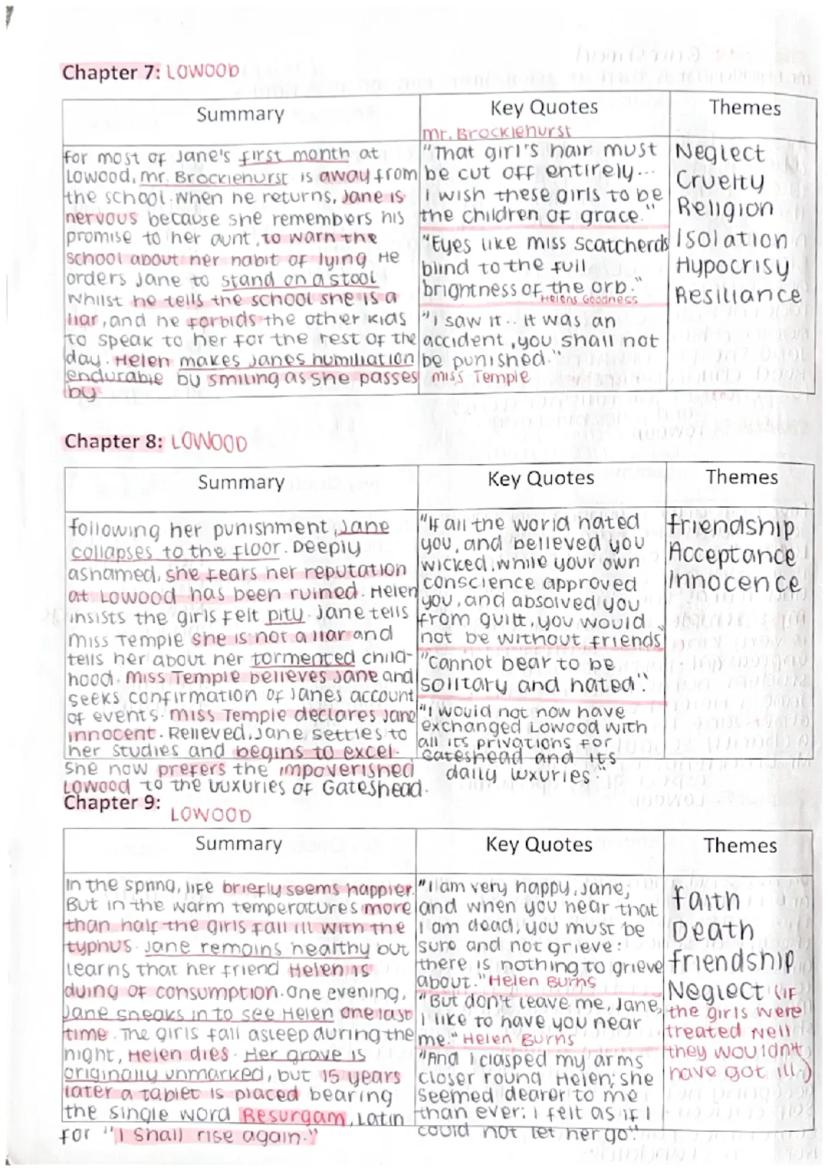 Chapter 7: LOWOOD
Summary
Key Quotes
Themes
for most of Jane's first month at
Lowood, mr. Brocklehurst is away from
the school. When he returns, Jane is
nervous because she remembers his
promise to her aunt, to warn the
school about her habit of lying He
orders Jane to stand on a stool
whilst he tells the school she is a
liar, and he forbids the other kids
to speak to her for the rest of the
day. Helen makes Janes humiliation
endurable by smiling as she passes
by
mr. Brocklehurst
"That girl's hair must
be cut off entirely...
I wish these girls to be
the children of grace."
"Eyes like miss Scatcherds
blind to the full
brightness of the orb."
Helens Goodness
"I saw it.. it was an
accident, you shall not
be punished."
miss Temple
Neglect
Cruelty
Religion
Isolation
Hypocrisy
Resiliance
Chapter 8: LOWOOD
Summary
Key Quotes
Themes
following her punishment, Jane
collapses to the floor. Deeply
ashamed, she fears her reputation
at Lowood has been ruined. Helen
insists the girls felt pity. Jane tells
miss Temple she is not a liar and
tells her about her tormented child-
hood. miss Temple believes Jane and
seeks confirmation of Janes account
of events. miss Temple declares Jane
innocent. Relieved, Jane settles to
her studies and begins to excel.
She now prefers the impoverished
Lowood to the luxuries of Gateshead.
"If all the world hated
you, and believed you
wicked, while your own
conscience approved
you, and absolved you
from guilt, you would
not be without friends"
"Cannot bear to be
solitary and hated".
"I would not now have
exchanged Lowood with
all its privations for
Gateshead and its
daily luxuries".
friendship
Acceptance
Innocence
Chapter 9:
LOWOOD
Summary
Key Quotes
Themes
In the spring, life briefly seems happier.
But in the warm temperatures more
than half the girls fall ill with the
typhus. Jane remains healthy but
learns that her friend Helen is
dying of consumption. One evening,
Jane sneaks in to see Helen one last
time. The girls fall asleep during the
night, Helen dies. Her grave is
originally unmarked, but 15 years
later a tablet is placed bearing
the single word Resurgam, Latin
for "I shall rise again."
"I am very happy, Jane;
and when you hear that
I am dead, you must be
sure and not grieve:
there is nothing to grieve
about." Helen Burns
"But don't leave me, Jane,
I like to have you near
me." Helen Burns
"And I clasped my arms
closer round Helen; she
seemed dearer to me
than ever; I felt as if I
could not let her go".
faith
Death
friendship
Neglect (if
the girls were
treated well
they wouldn't
have got ill)